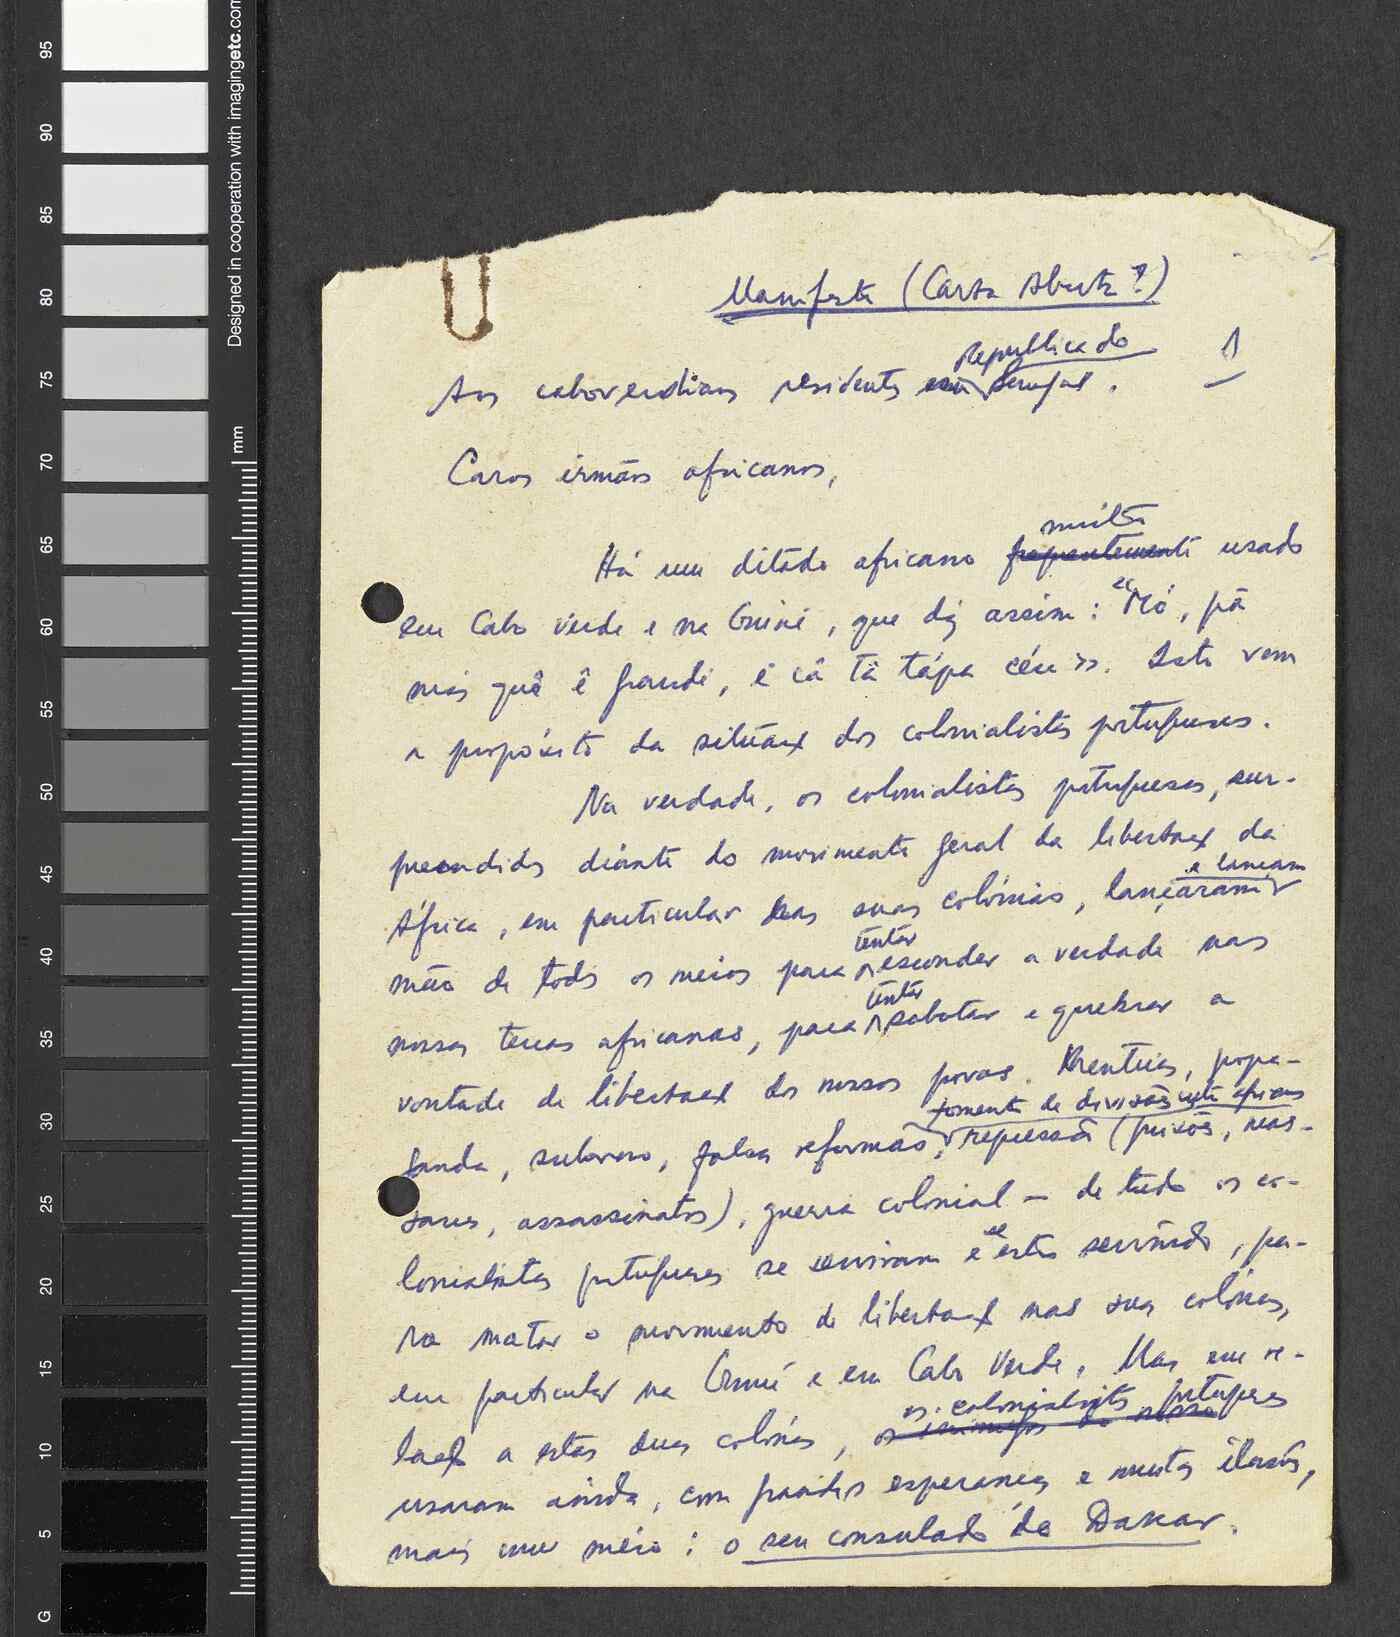 Designed in cooperation with imagingetc.com
mm
95
90
85
80
75
70
65
60
55
50
45
40
35
30
25
20
15
10
5
G
Manifesto (Carta Aberta?)
1
Republica do
Aos caboverdianos residentes em Senegal.
Caros irmãos africanos,
muito
Há um ditado africano frequentemente usado
em Cabo Verde e na Guiné, que diz assim: "Mó, pâ
más quê ê grandi, ê câ tâ tápa céu». Isto vem
a propósito da situação dos colonialistas portugueses.
Na verdade, os colonialistas portugueses, sur-
preendidos diante do movimento geral da libertação da
e lançam
África, em particular das suas colónias, lançaram
tentar
mão de todos os meios para esconder a verdade nas
tentar
nossas terras africanas, para sabotar e quebrar a
vontade de libertação dos nossos povos. Mentiras, propa-
fomento de divisões entre africanos
ganda, suborno, falsas reformas, repressão (prisões, mas-
sacres, assassinatos), guerra colonial — de tudo os co-
se
lonialistas portugueses se serviram e estão servindo, pa-
ra matar o movimento de libertação nas suas colónias,
em particular na Guiné e em Cabo Verde. Mas em re-
os colonialistas portugueses
lação a estas duas colónias, os inimigos do nosso
usaram ainda, com grandes esperanças e muitas ilusões,
mais um méio: o seu consulado de Dakar.